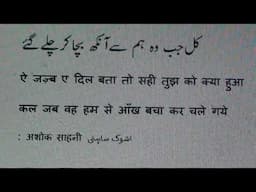 کل جب وہ ہم سے آنکھ بچا کر چلے گئے
ऐ जज़्ब ए दिल बता तो सही तुझ को क्या हुआ
कल जब वह हम से आँख बचा कर चले गये
: अशोक साहनी اشوک ساہنی